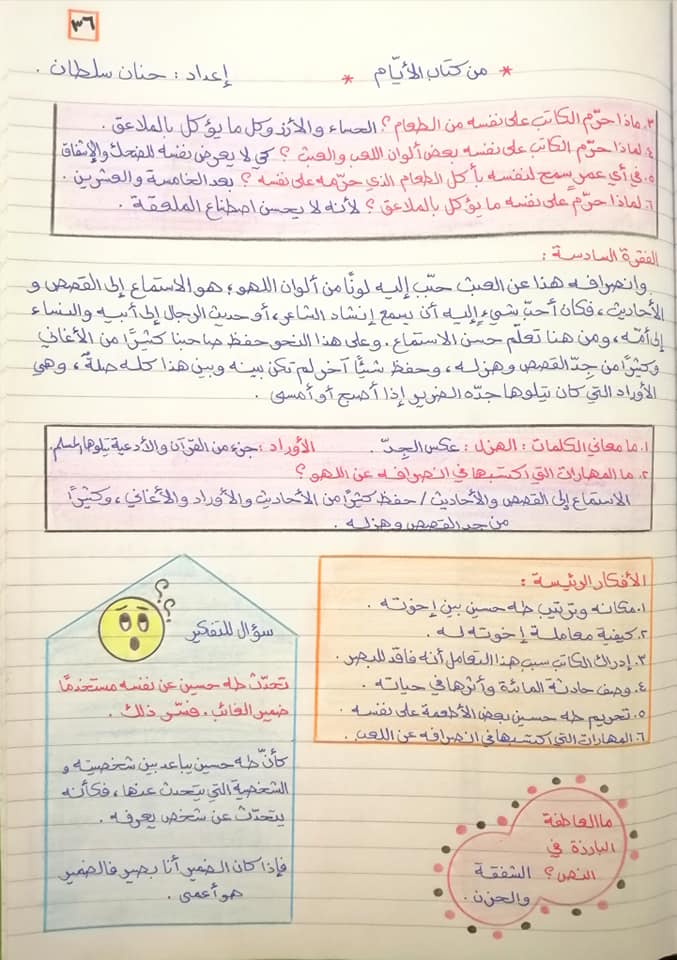 ٣٦
* من كتاب الأيّام * إعداد : حنان سلطان .
٣. ماذا حرّم الكاتب على نفسه من الطعام ؟ الحساء والأرز وكل ما يؤكل بالملاعق .
٤. لماذا حرّم الكاتب على نفسه بعض ألوان اللعب والعبث ؟ كي لا يعرض نفسه للضحك والإشفاق
٥. في أي عمر سمح لنفسه بأكل الطعام الذي حرّمه على نفسه ؟ بعد الخامسة والعشرين .
٦. لماذا حرّم على نفسه ما يؤكل بالملاعق ؟ لأنه لا يحسن اصطناع الملعقة .
الفقرة السادسة :
وانصرافه هذا عن العبث حبّب إليه لونًا من ألوان اللهو ؛ هو الاستماع إلى القصص و
الأحاديث ، فكان أحبّ شيءٍ إليه أن يسمع إنشاد الشاعر ، أو حديث الرجال إلى أبيه والنساء
إلى أمّه ، ومن هنا تعلّم حسن الاستماع . وعلى هذا النحو حفظ صاحبنا كثيرًا من الأغاني
وكثيرًا من جِدّ القصص وهزله ، وحفظ شيئًا آخر لم تكن بينه وبين هذا كله صلةٌ ، وهي
الأوراد التي كان يتلوها جدّه الضرير إذا أصبح أو أمسى .
١. ما معاني الكلمات : الهزل : عكس الجِدّ . الأوراد : جزء من القرآن والأدعية يتلوها المسلم .
٢. ما المهارات التي اكتسبها في انصرافه عن اللهو ؟
الاستماع إلى القصص والأحاديث / حفظ كثيرًا من الأحاديث والأوراد والأغاني ، وكثيرًا
من جد القصص وهزله .
الأفكار الرئيسة :
١. مكانه وترتيب طه حسين بين إخوته .
٢. كيفية معاملة إخوته له .
٣. إدراك الكاتب سبب هذا التعامل أنه فاقد للبصر .
٤. وصف حادثة المائدة وأثرها في حياته .
٥. تحريم طه حسين بعض الأطعمة على نفسه .
٦. المهارات التي اكتسبها في انصرافه عن اللعب .
؟؟؟
سؤال للتفكير
تحدّث طه حسين عن نفسه مستخدمًا
ضمير الغائب . فسّر ذلك .
كأنّ طه حسين يباعد بين شخصيته و
الشخصية التي يتحدث عنها ، فكأنه
يتحدّث عن شخص يعرفه .
فإذا كان الضمير أنا بصير فالضمير
هو أعمى .
ما العاطفة
البارزة في
النص ؟ الشفقة
والحزن .